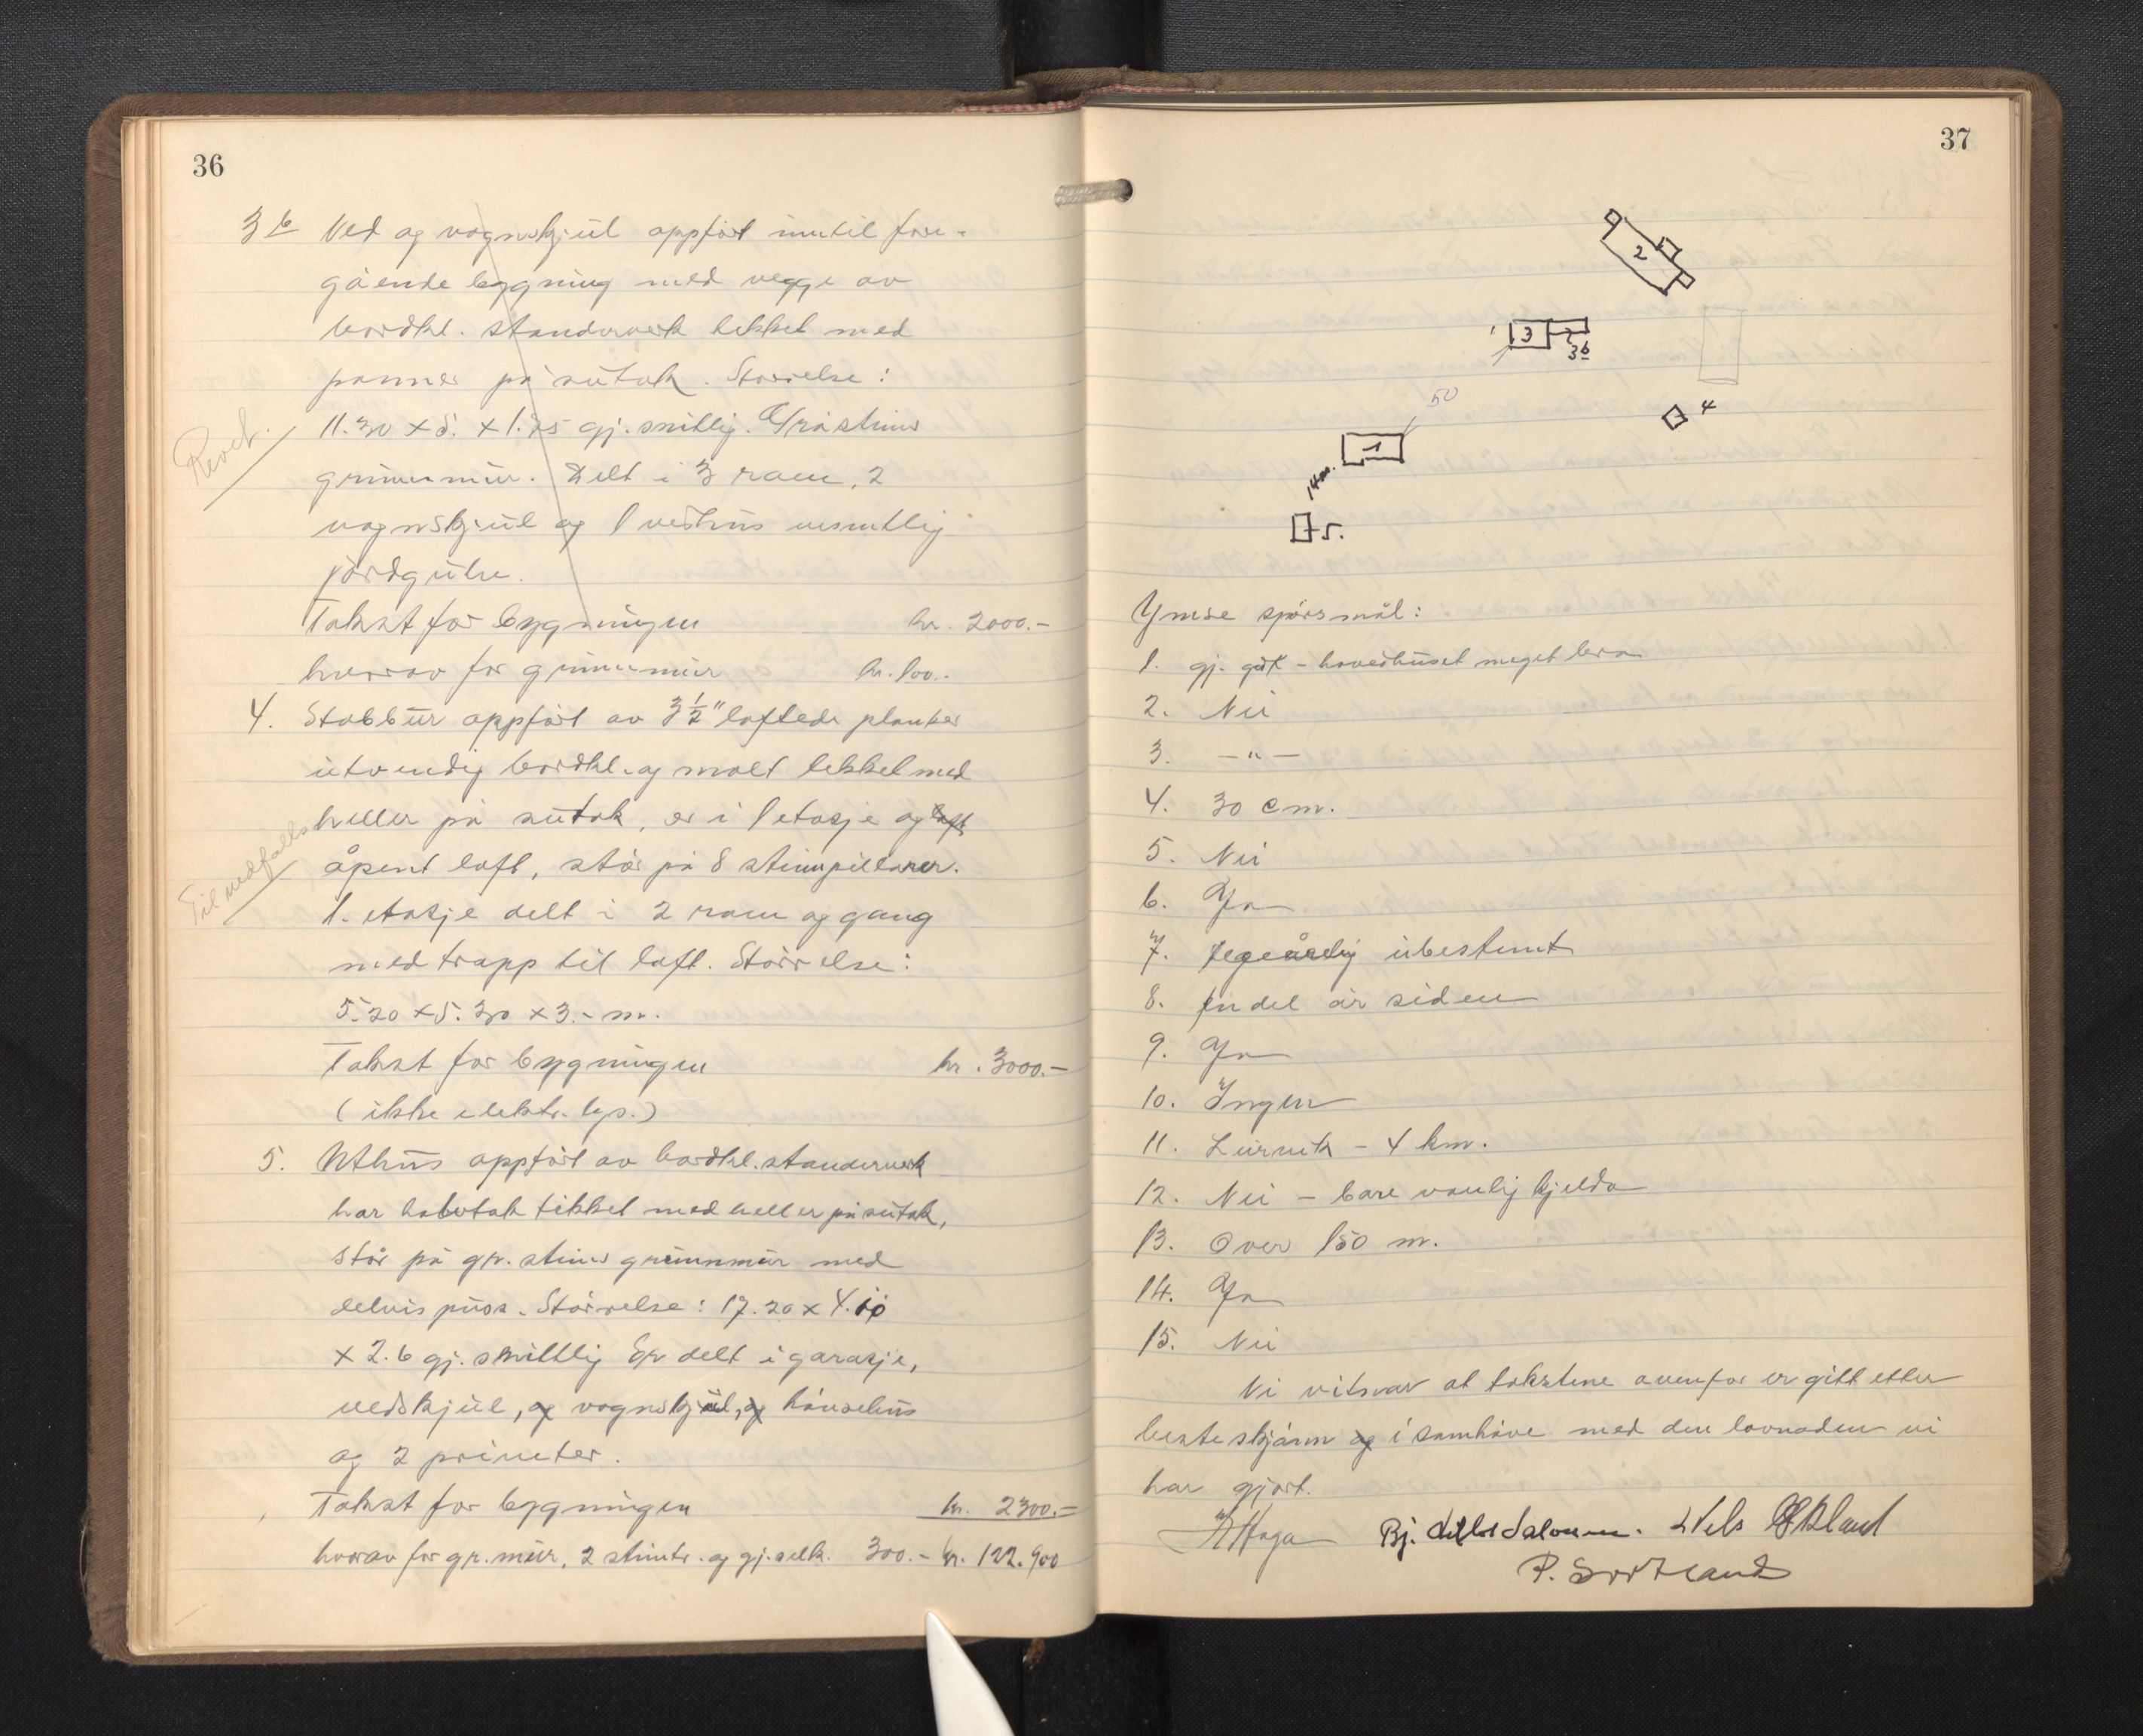 36
3b Ved og vognskjul oppført inntil fore-
gående bygning med vegge av
bordkl. standerverk tekket med
panner på sutak. Størrelse:
11.30 x 5. x 1.75 gj.snittlig. Gråsteins
Revet.
grunnmur. Delt i 3 rom, 2
vognskjul og 1 vedhus vesentlig
jordgulv.
Takst for bygningen kr. 2000.-
hvorav for grunnmur kr. 100.-
4. Stabbur oppført av 3½" laftede planker
utvendig bordkl. og malt tekket med
heller på sutak, er i 1 etasje og loft
Til nedfalls
åpent loft, står på 8 steinpillarer.
1. etasje delt i 2 rom og gang
med trapp til loft. Størrelse:
5.20 x 5.30 x 3.- m.
Takst for bygningen kr. 3000.-
(ikke elektr. lys.)
5. Uthus oppført av bordkl. standerverk
har halvtak tekket med heller på sutak,
står på gr. steins grunnmur med
delvis puss. Størrelse: 17.20 x 4.10
x 2.6 gj. snittlig Er delt i garasje,
vedskjul, og vognskjul, og hønsehus
og 2 priveter.
Takst for bygningen kr. 2300.-
hvorav for gr. mur, 2 steintr. og gj. selk. 300.- kr. 122.900
37
2
3
3b
50
4
1
14m.
5.
Ymse spørsmål:
1. gj. godt - hovedhuset meget bra
2. Nei
3. - " -
4. 30 cm.
5. Nei
6. Ja
7. Regeårlig ubestemt
8. En del år siden
9. Ja
10. Ingen
11. Leirvik - 4 km.
12. Nei - bare vanlig kjelda
13. Over 150 m.
14. Ja
15. Nei
Vi vitnar at takstene ovenfor er gitt etter
beste skjønn og i samhøve med den lovnaden vi
har gjort.
Haga Bj. Nels Økland
P. Sortland